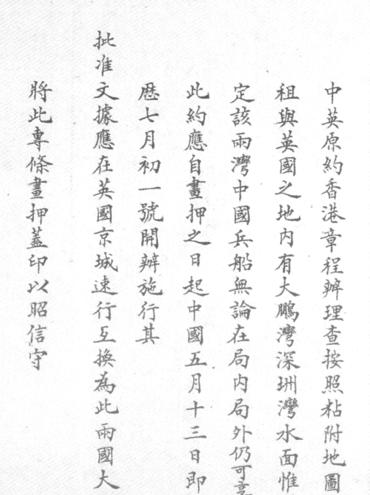 中英原約香港章程辦理查按照粘附地圖
租與英國之地內有大鵬灣深圳灣水面惟
定該兩灣中國兵船無論在局內局外仍可
此約應自畫押之日起中國五月十三日即
歷七月初一號開辦施行其
批准文據應在英國京城速行互換為此兩國大
將此專條畫押蓋印以昭信守